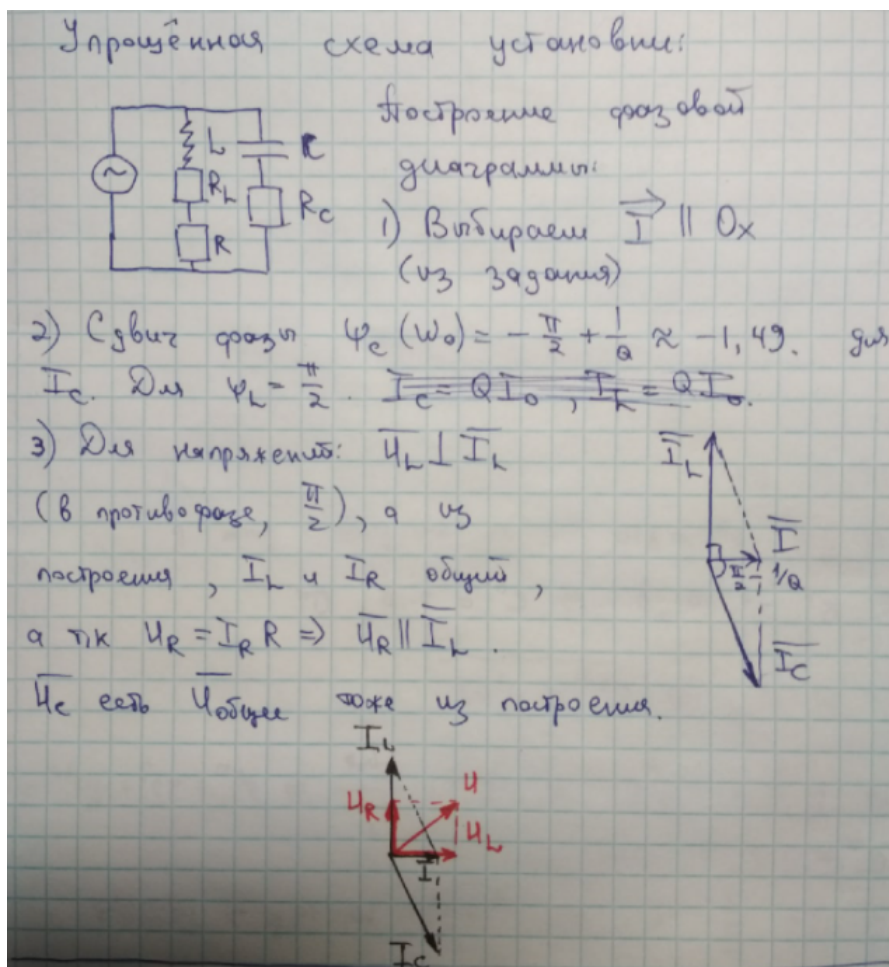 Упрощённая схема установки:
Построение фазовой
диаграммы:
~
L
C
R_L
R_C
R
1) Выбираем I⃗ || Ox
(из задания)
2) Сдвиг фазы φ_c (ω₀) = - π/2 + 1/Q ≈ -1,49. для
I_C. Для φ_L = π/2. I_C = Q I₀, I_L = Q I₀.
3) Для напряжений: U_L ⊥ I_L
(в противофазе, π/2), а из
построения, I_L и I_R общий,
а т,к U_R = I_R R => U_R || I_L.
U_C есть U_общее тоже из построения.
I_L
I
π/2
1/Q
I_C
I_L
U
U_R
U_L
I
I_C